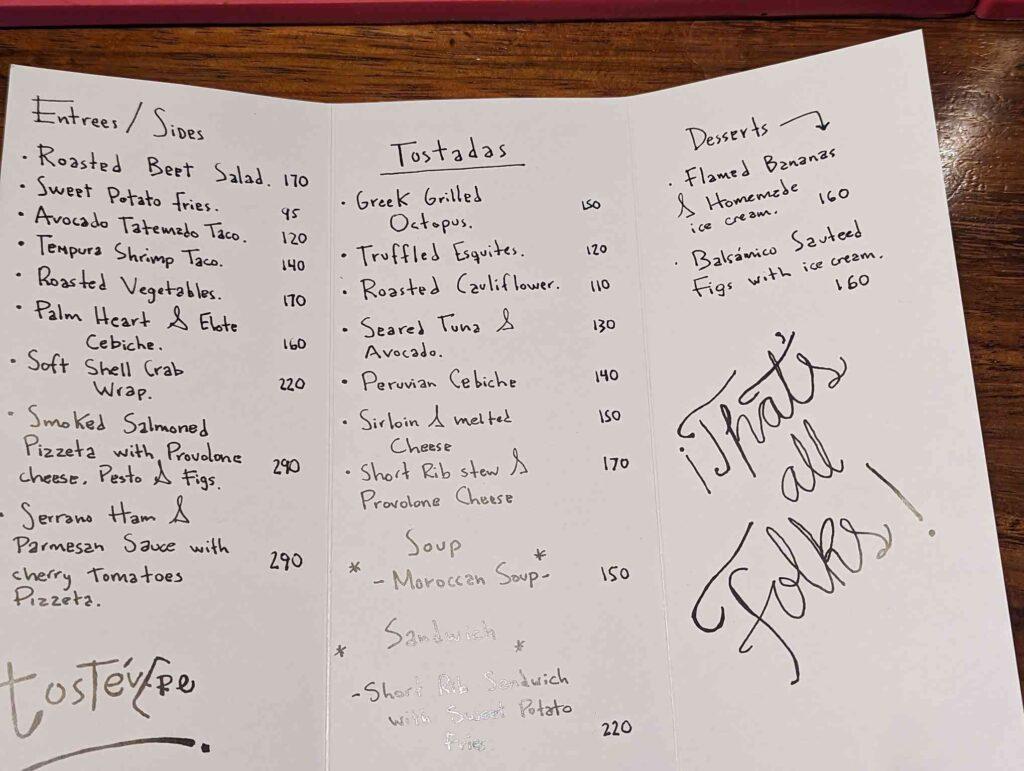 Entrees / Sides
· Roasted Beet Salad. 170
· Sweet Potato fries. 95
· Avocado Tatemado Taco. 120
· Tempura Shrimp Taco. 140
· Roasted Vegetables. 170
· Palm Heart & Elote
Cebiche. 160
· Soft Shell Crab
Wrap. 220
· Smoked Salmoned
Pizzeta with Provolone
cheese, Pesto & Figs. 290
· Serrano Ham &
Parmesan Sauce with
cherry Tomatoes
Pizzeta. 290
Tostadas
· Greek Grilled
Octopus. 150
· Truffled Esquites. 120
· Roasted Cauliflower. 110
· Seared Tuna &
Avocado. 130
· Peruvian Cebiche 140
· Sirloin & melted
Cheese 150
· Short Rib stew &
Provolone Cheese 170
Soup
* - Moroccan Soup - * 150
Sandwich
* *
- Short Rib Sandwich
with Sweet Potato
Fries. 220
Desserts
· Flamed Bananas
& Homemade
ice cream. 160
· Balsámico Sauteed
Figs with ice cream.
160
¡That's
all
Folks!